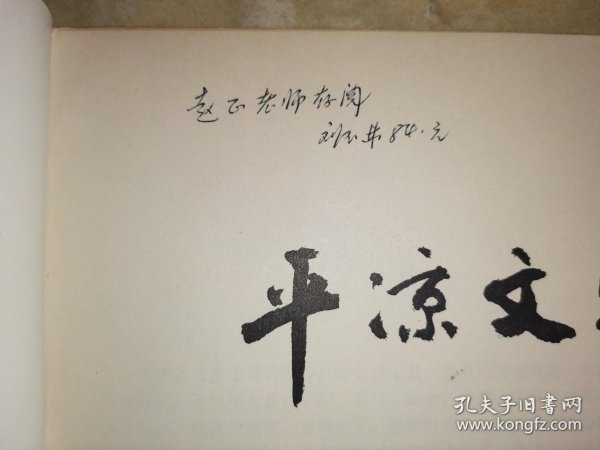 赵正老师存阅
84.元
平凉文
孔夫子旧書网
www.kongfz.com